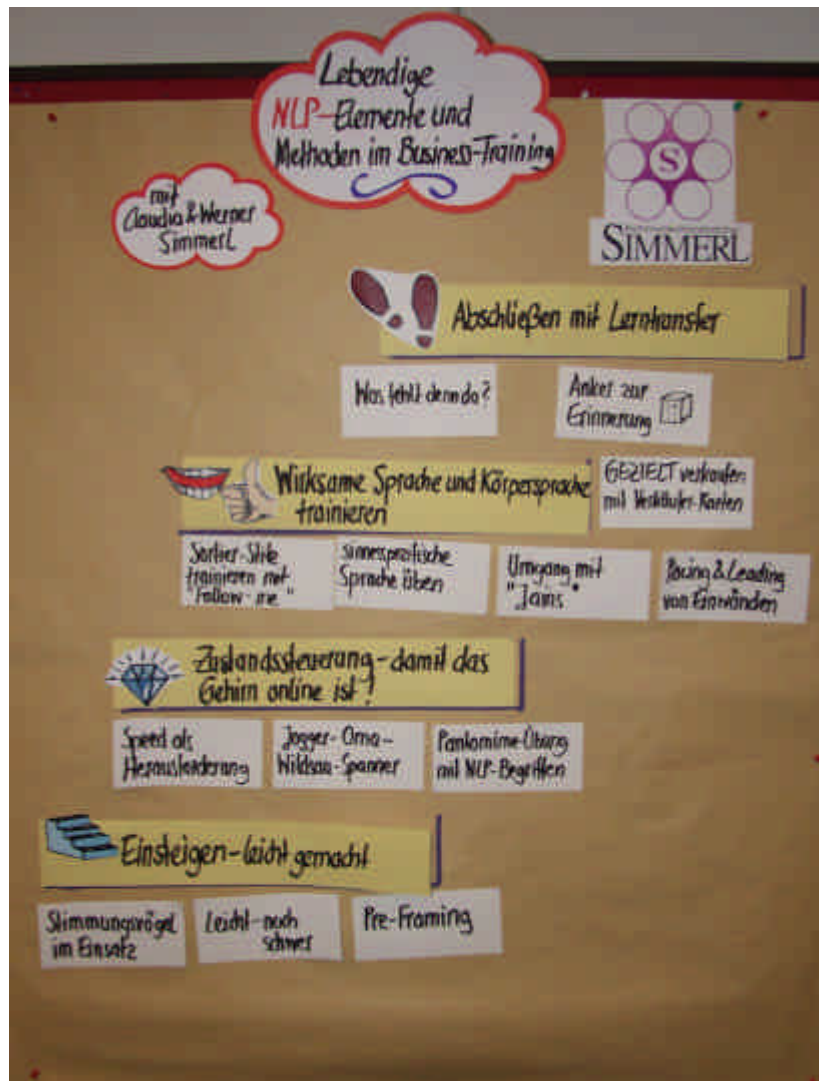 Lebendige
NLP-Elemente und
Methoden im Business-Training
mit
Claudia & Werner
Simmerl
S
SIMMERL
Abschließen mit Lerntransfer
Was fehlt denn da?
Anker zur
Erinnerung
Wirksame Sprache und Körpersprache
trainieren
GEZIELT verkaufen
mit Verkäufer-Karten
Sortier-Stile
trainieren mit
"Follow-me"
sinnesspezifische
Sprache üben
Umgang mit
"Jains"
Pacing & Leading
von Einwänden
Zustandssteuerung-damit das
Gehirn online ist!
Speed als
Herausforderung
Jogger-Oma-
Wildsau-Spanner
Pantomime-Übung
mit NLP-Begriffen
Einsteigen-leicht gemacht
Stimmungsvögel
im Einsatz
Leicht-noch
schwer
Pre-Framing